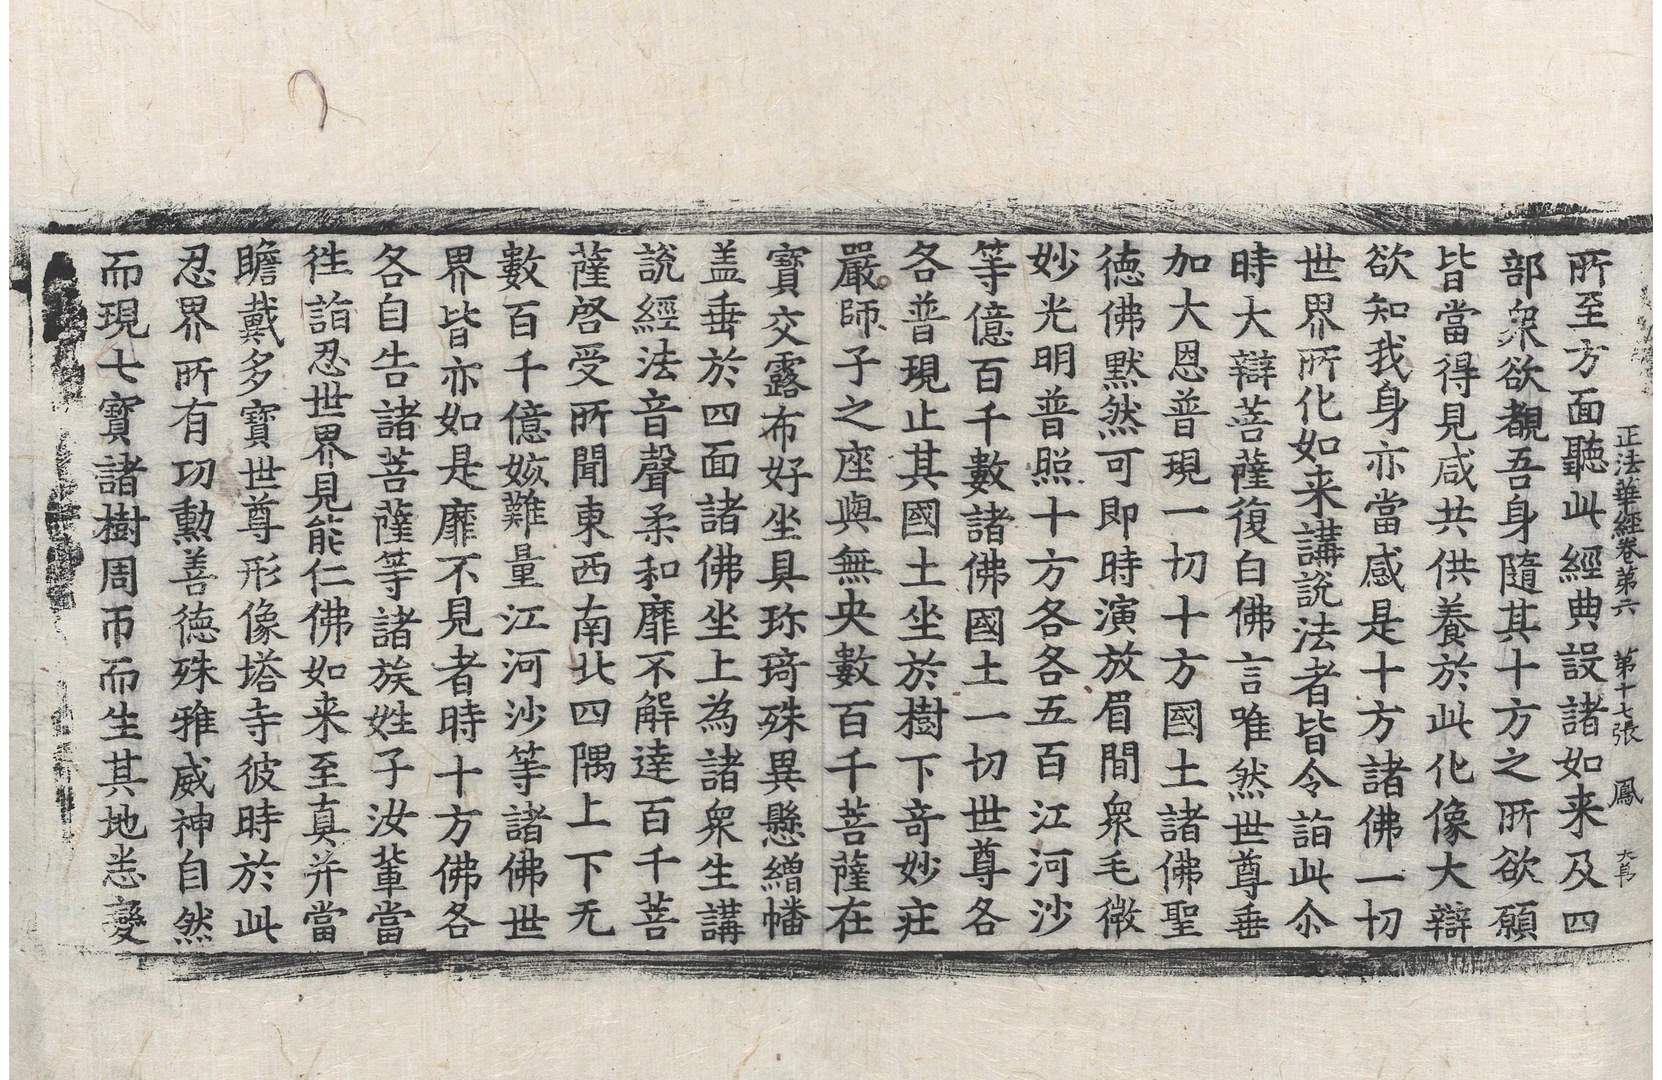 正法華經卷第六 第十七張 鳳
所至方面聽此經典設諸如来及四
部衆欲覩吾身隨其十方之所欲願
皆當得見咸共供養於此化像大辯
欲知我身亦當感是十方諸佛一切
世界所化如来講說法者皆令詣此尒
時大辯菩薩復白佛言唯然世尊垂
加大恩普現一切十方國土諸佛聖
德佛默然可即時演放眉間衆毛微
妙光明普照十方各各五百江河沙
等億百千數諸佛國土一切世尊各
各普現止其國土坐於樹下奇妙庄
嚴師子之座與無央數百千菩薩在
寶交露布好坐具珎琦殊異懸繒幡
盖垂於四面諸佛坐上為諸衆生講
說經法音聲柔和靡不解達百千菩
薩啓受所聞東西南北四隅上下无
數百千億姟難量江河沙等諸佛世
界皆亦如是靡不見者時十方佛各
各自告諸菩薩等諸族姓子汝輩當
徃詣忍世界見能仁佛如来至真并當
瞻戴多寶世尊形像塔寺彼時於此
忍界所有功勳善德殊雅威神自然
而現七寶諸樹周帀而生其地悉變